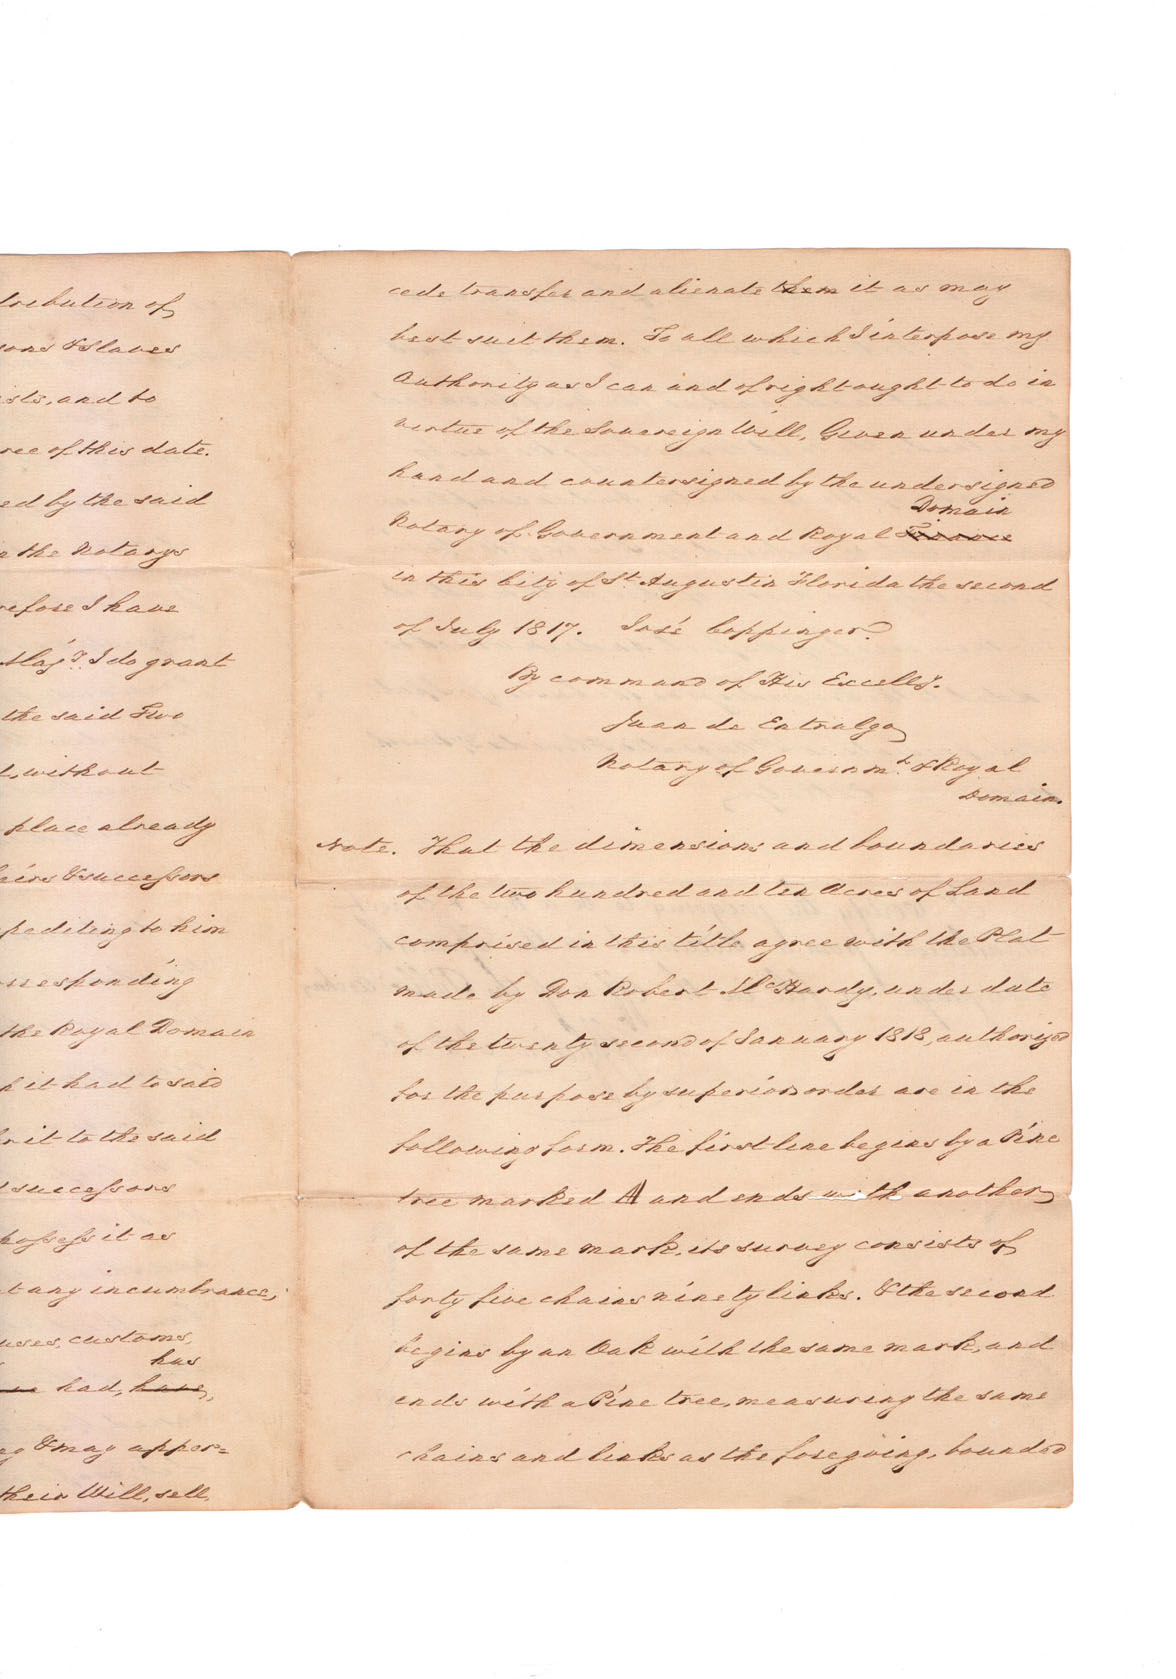 tribution of
sons & Slaves
ists, and to
ree of this date.
ed by the said
the Notarys
refore I have
Majy. I do grant
the said Two
t, without
place already
heirs & successors
pediting to him
orresponding
the Royal Domain
h it had to said
r it to the said
d successors
possess it as
t any incumbrance,
uses, customs,
has
had, have,
ey & may apper=
their Will, sell,
cede transfer and alienate them it as may
best suit them. To all which I interpose my
Authority as I can and of right ought to do in
virtue of the Sovereign Will, Given under my
hand and countersigned by the undersigned
Domain
Notary of Government and Royal Finance
in this City of St. Augustin Florida the second
of July 1817. José Coppinger.
By command of His Excelly.
Juan de Entralgo
Notary of Governmt. & Royal
Domain.
Note. That the dimensions and boundaries
of the two hundred and ten Acres of Land
comprised in this title agree with the Plat
made by Don Robert McHardy, under date
of the twenty second of January 1818, authorized
for the purpose by superior order are in the
following form. The first line begins by a Pine
tree marked A and ends with another
of the same mark, its survey consists of
forty five chains ninety links. & the second
begins by an Oak with the same mark, and
ends with a Pine tree, measuring the same
chains and links as the foregoing, bounded